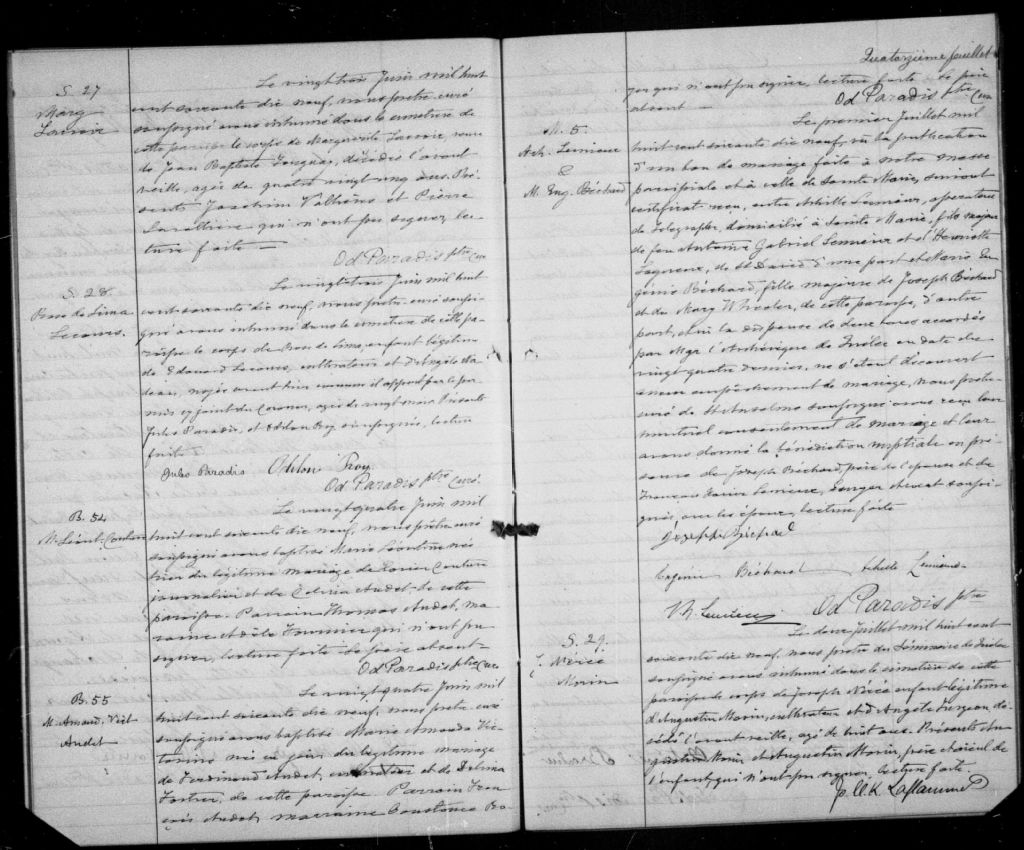 S. 27
Mary
Lacroix
Le vingt trois Juin mil huit
cent soixante dix neuf, nous prêtre curé
soussigné avons inhumé dans le cimetière de
cette paroisse le corps de Marguerite Lacroix veuve
de Jean Baptiste décédée l'avant
veille, agée de quatre vingt cinq ans. Pré-
sents Joachim et Pierre
qui n'ont pu signer, lec-
ture faite —
Od Paradis ptre Curé
S. 28
Rose de Lima
Lecours.
Le vingt trois Juin mil huit
cent soixante dix neuf, nous prêtre curé soussi-
gné avons inhumé dans le cimetière de cette pa-
roisse le corps de Rose de Lima, enfant légitime
de Edouard Lecours, cultivateur et d'Angèle Na-
deau, noyée avant hier comme il appert par le per-
mis ci joint du Coroner, agée de vingt mois. Présents
Jules Paradis, et Odilon Roy soussignés, lecture
faite
Jules Paradis Odilon Roy
Od Paradis ptre Curé.
B. 54
M. Léont. Couture
Le vingt quatre Juin mil
huit cent soixante dix neuf, nous prêtre curé
soussigné avons baptisé Marie Léontine née
hier du légitime mariage de Xavier Couture
journalier et de Célina Audet de cette
paroisse. Parrain Thomas Audet, ma-
rraine Adèle Fournier qui n'ont pu
signer, lecture faite le père absent —
Od Paradis ptre Curé
B. 55
M. Amand. Vict
Audet
Le vingt quatre Juin mil
huit cent soixante dix neuf, nous prêtre curé
soussigné avons baptisé Marie Amanda Vic-
torine née ce jour du légitime mariage
de Ferdinand Audet, et de Delima
Fortier, de cette paroisse Parrain Fran
çois Audet, marraine Constance Ro-
Quatorzième feuillet
qui n'ont pu signer, lecture faite le père
absent —
Od Paradis ptre Curé
M. 5.
Ach. Lemieux
&
M. Eug. Béchard
Le premier Juillet mil
huit cent soixante dix neuf, vu la publication
d'un ban de mariage faite à notre messe
paroissiale et à celle de Sainte Marie, suivant
certificat reçu, entre Achille Lemieux, opérateur
de Télégraphe, domicilié à Sainte Marie, fils majeur
de feu Antoine Gabriel Lemieux et d'Henriette
Lagueux, de St David d'une part et Marie Eu
génie Béchard, fille majeure de Joseph Béchard
et de Mary Wheeler, de cette paroisse, d'autre
part, vu la dispense de deux bans accordés
par Mgr l'Archevêque de Québec en date du
vingt quatre dernier, ne s'étant découvert
aucun empêchement de mariage, nous prêtre
curé de St Anselme soussigné avons reçu leur
mutuel consentement de mariage et leur
avons donné la bénédiction nuptiale en pré
sence de Joseph Béchard, père de l'épouse et de
François Xavier Lemieux, avocat soussi-
gnés, avec les époux, lecture faite
Joseph Béchard
Eugénie Béchard Achille Lemieux
Lemieux Od Paradis ptre
S. 29.
Nérée
Morin
Le deux Juillet mil huit cent
soixante dix neuf, nous prêtre du Séminaire de Québec
soussigné avons inhumé dans le cimetière de cette
paroisse le corps de Joseph Nérée enfant légitime
d'Augustin Morin, cultivateur et d'Angèle Turgeon, dé-
cédé l'avant veille, agé de huit ans. Présents Au-
gustin Morin et Augustin Morin, père et aïeul de
l'enfant, qui n'ont pu signer, lecture faite.
J. U. K. Laflamme